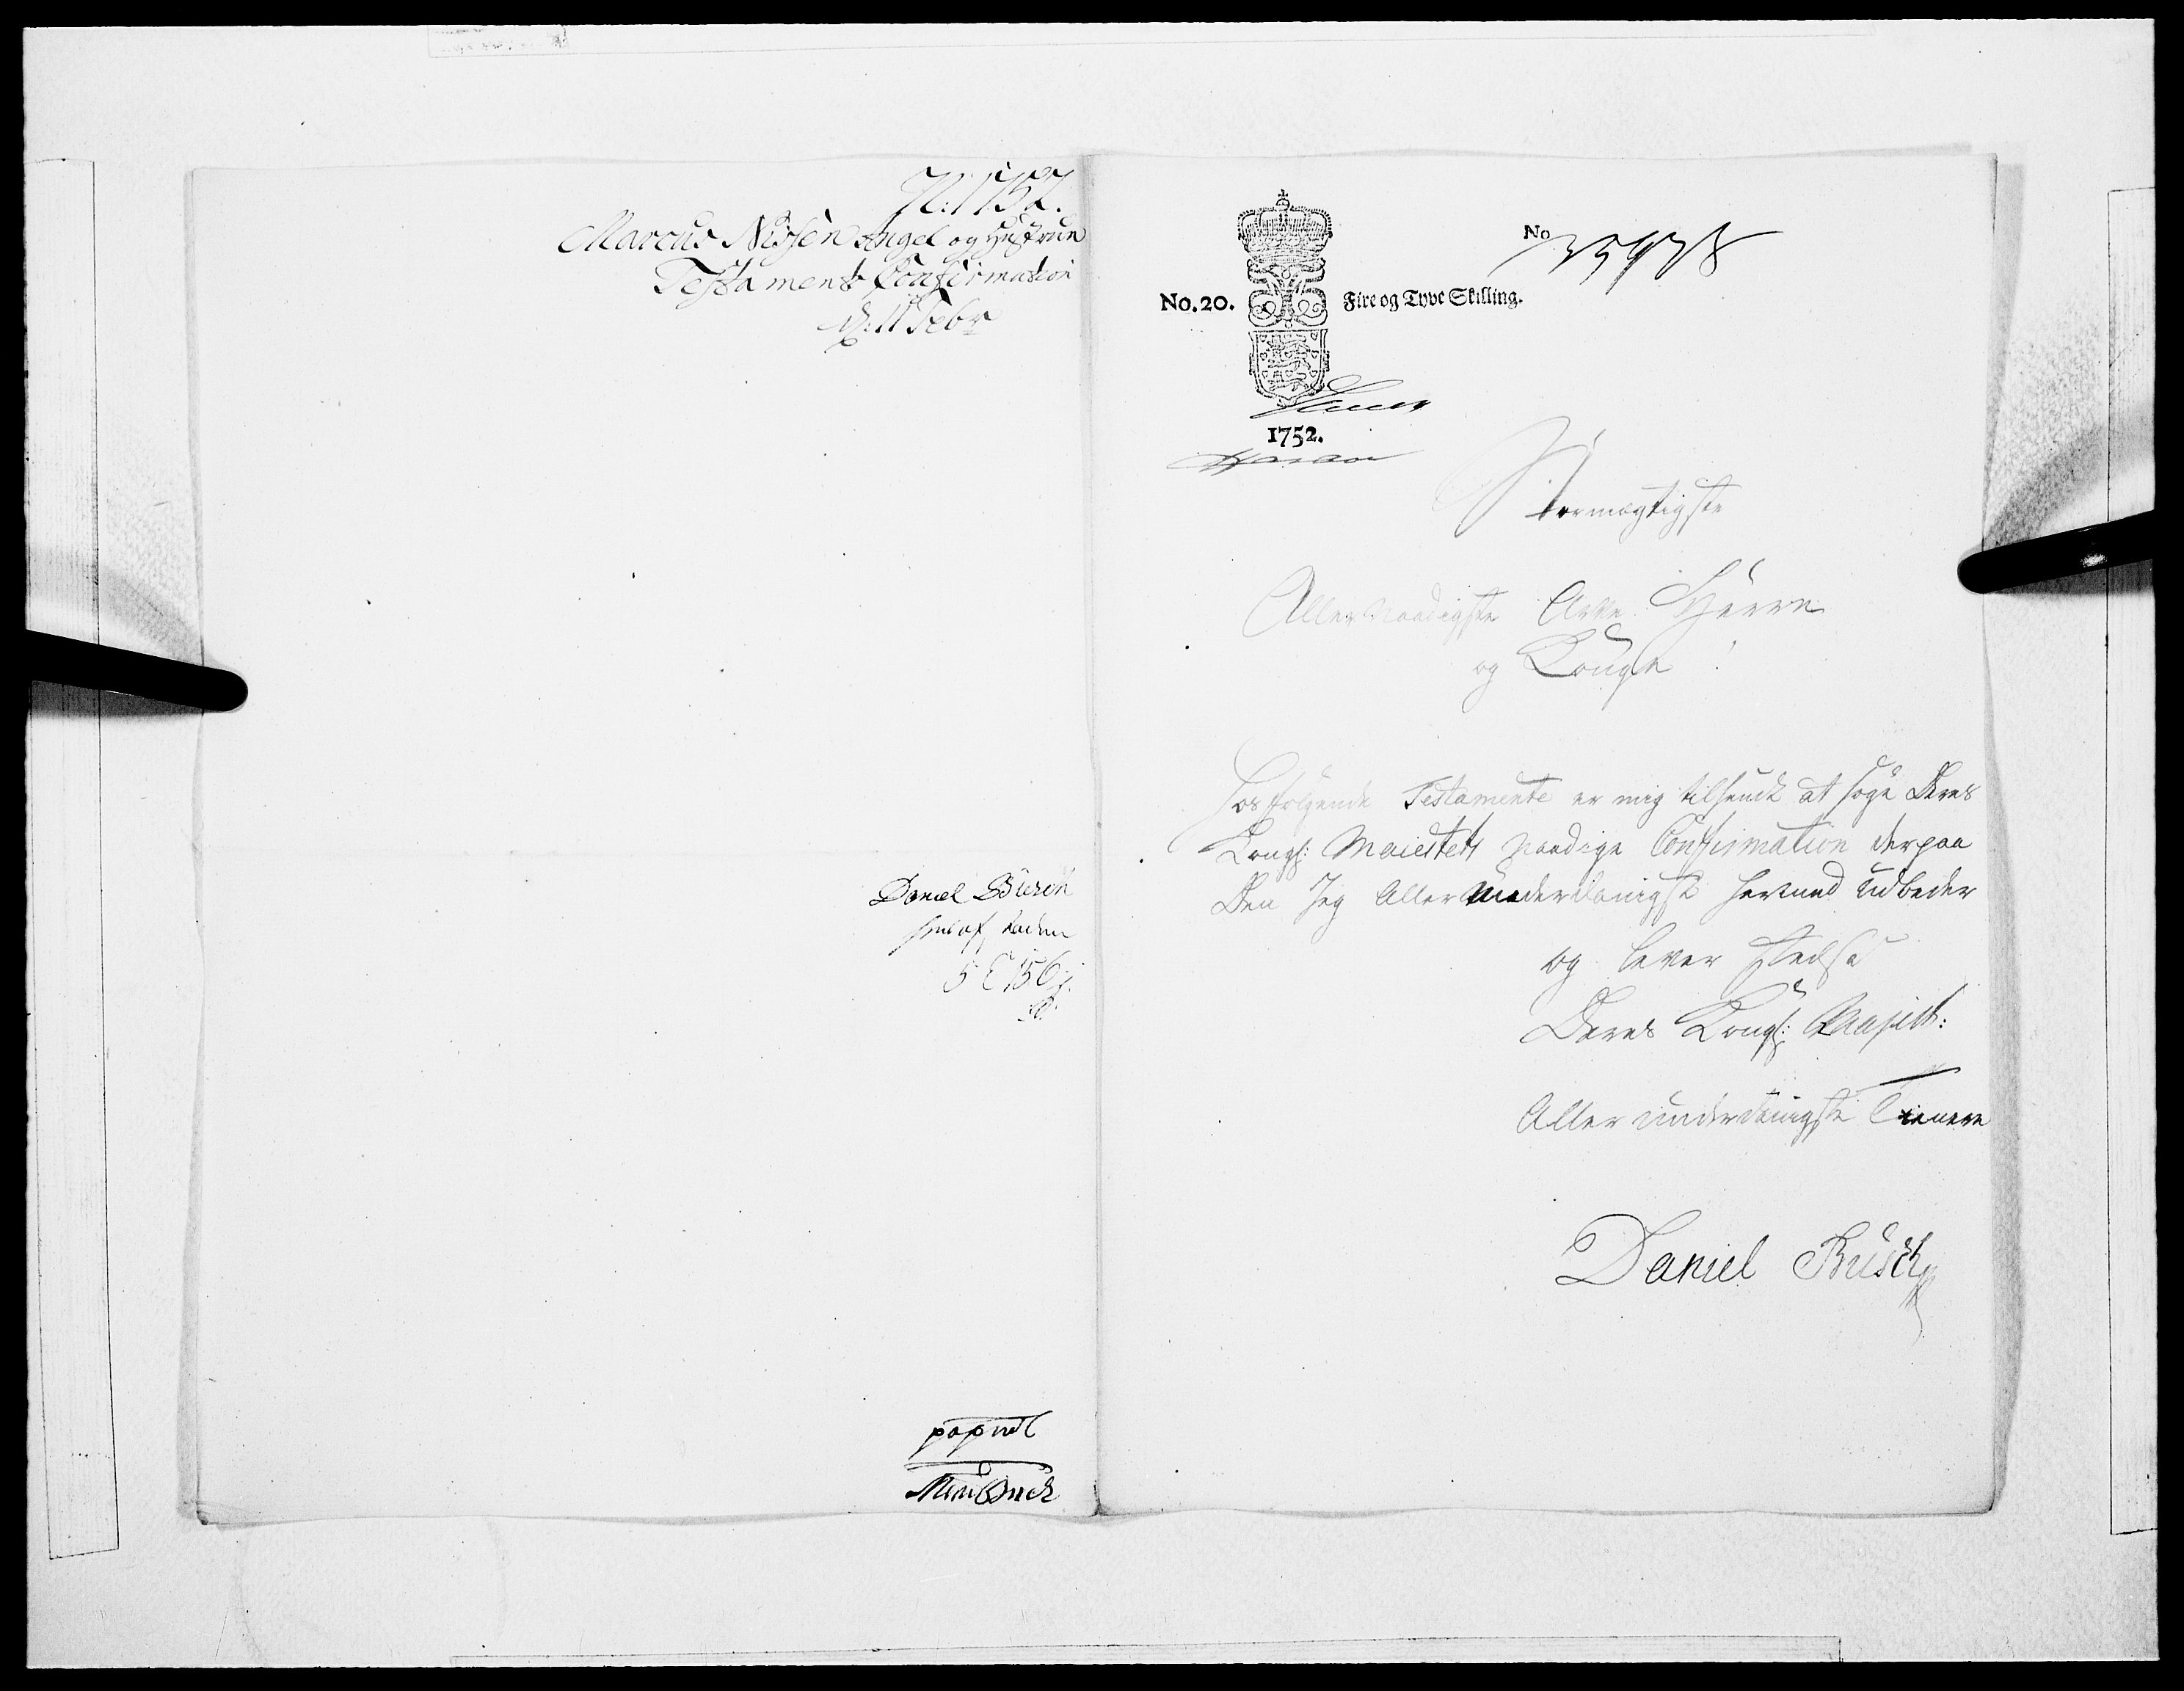 1752.
Marcus Nissen Angel og Hustrue
Testament Confirmation
d: 11 Febr
Daniel
No
No. 20.
Fire og Tyve Skilling.
1752.
Stormægtigste
Aller Naadigste Arve Herre
og Konge!
Hosfølgende Testamente er mig tilsendt at søge Deres
Kongl: Maiestets Naadige Confirmation derpaa
Den Jeg Aller Underdanigst herved udbeder
og lever stedse
Deres Kongl: Majest:
Aller underdanigste Tienere
Daniel Busch